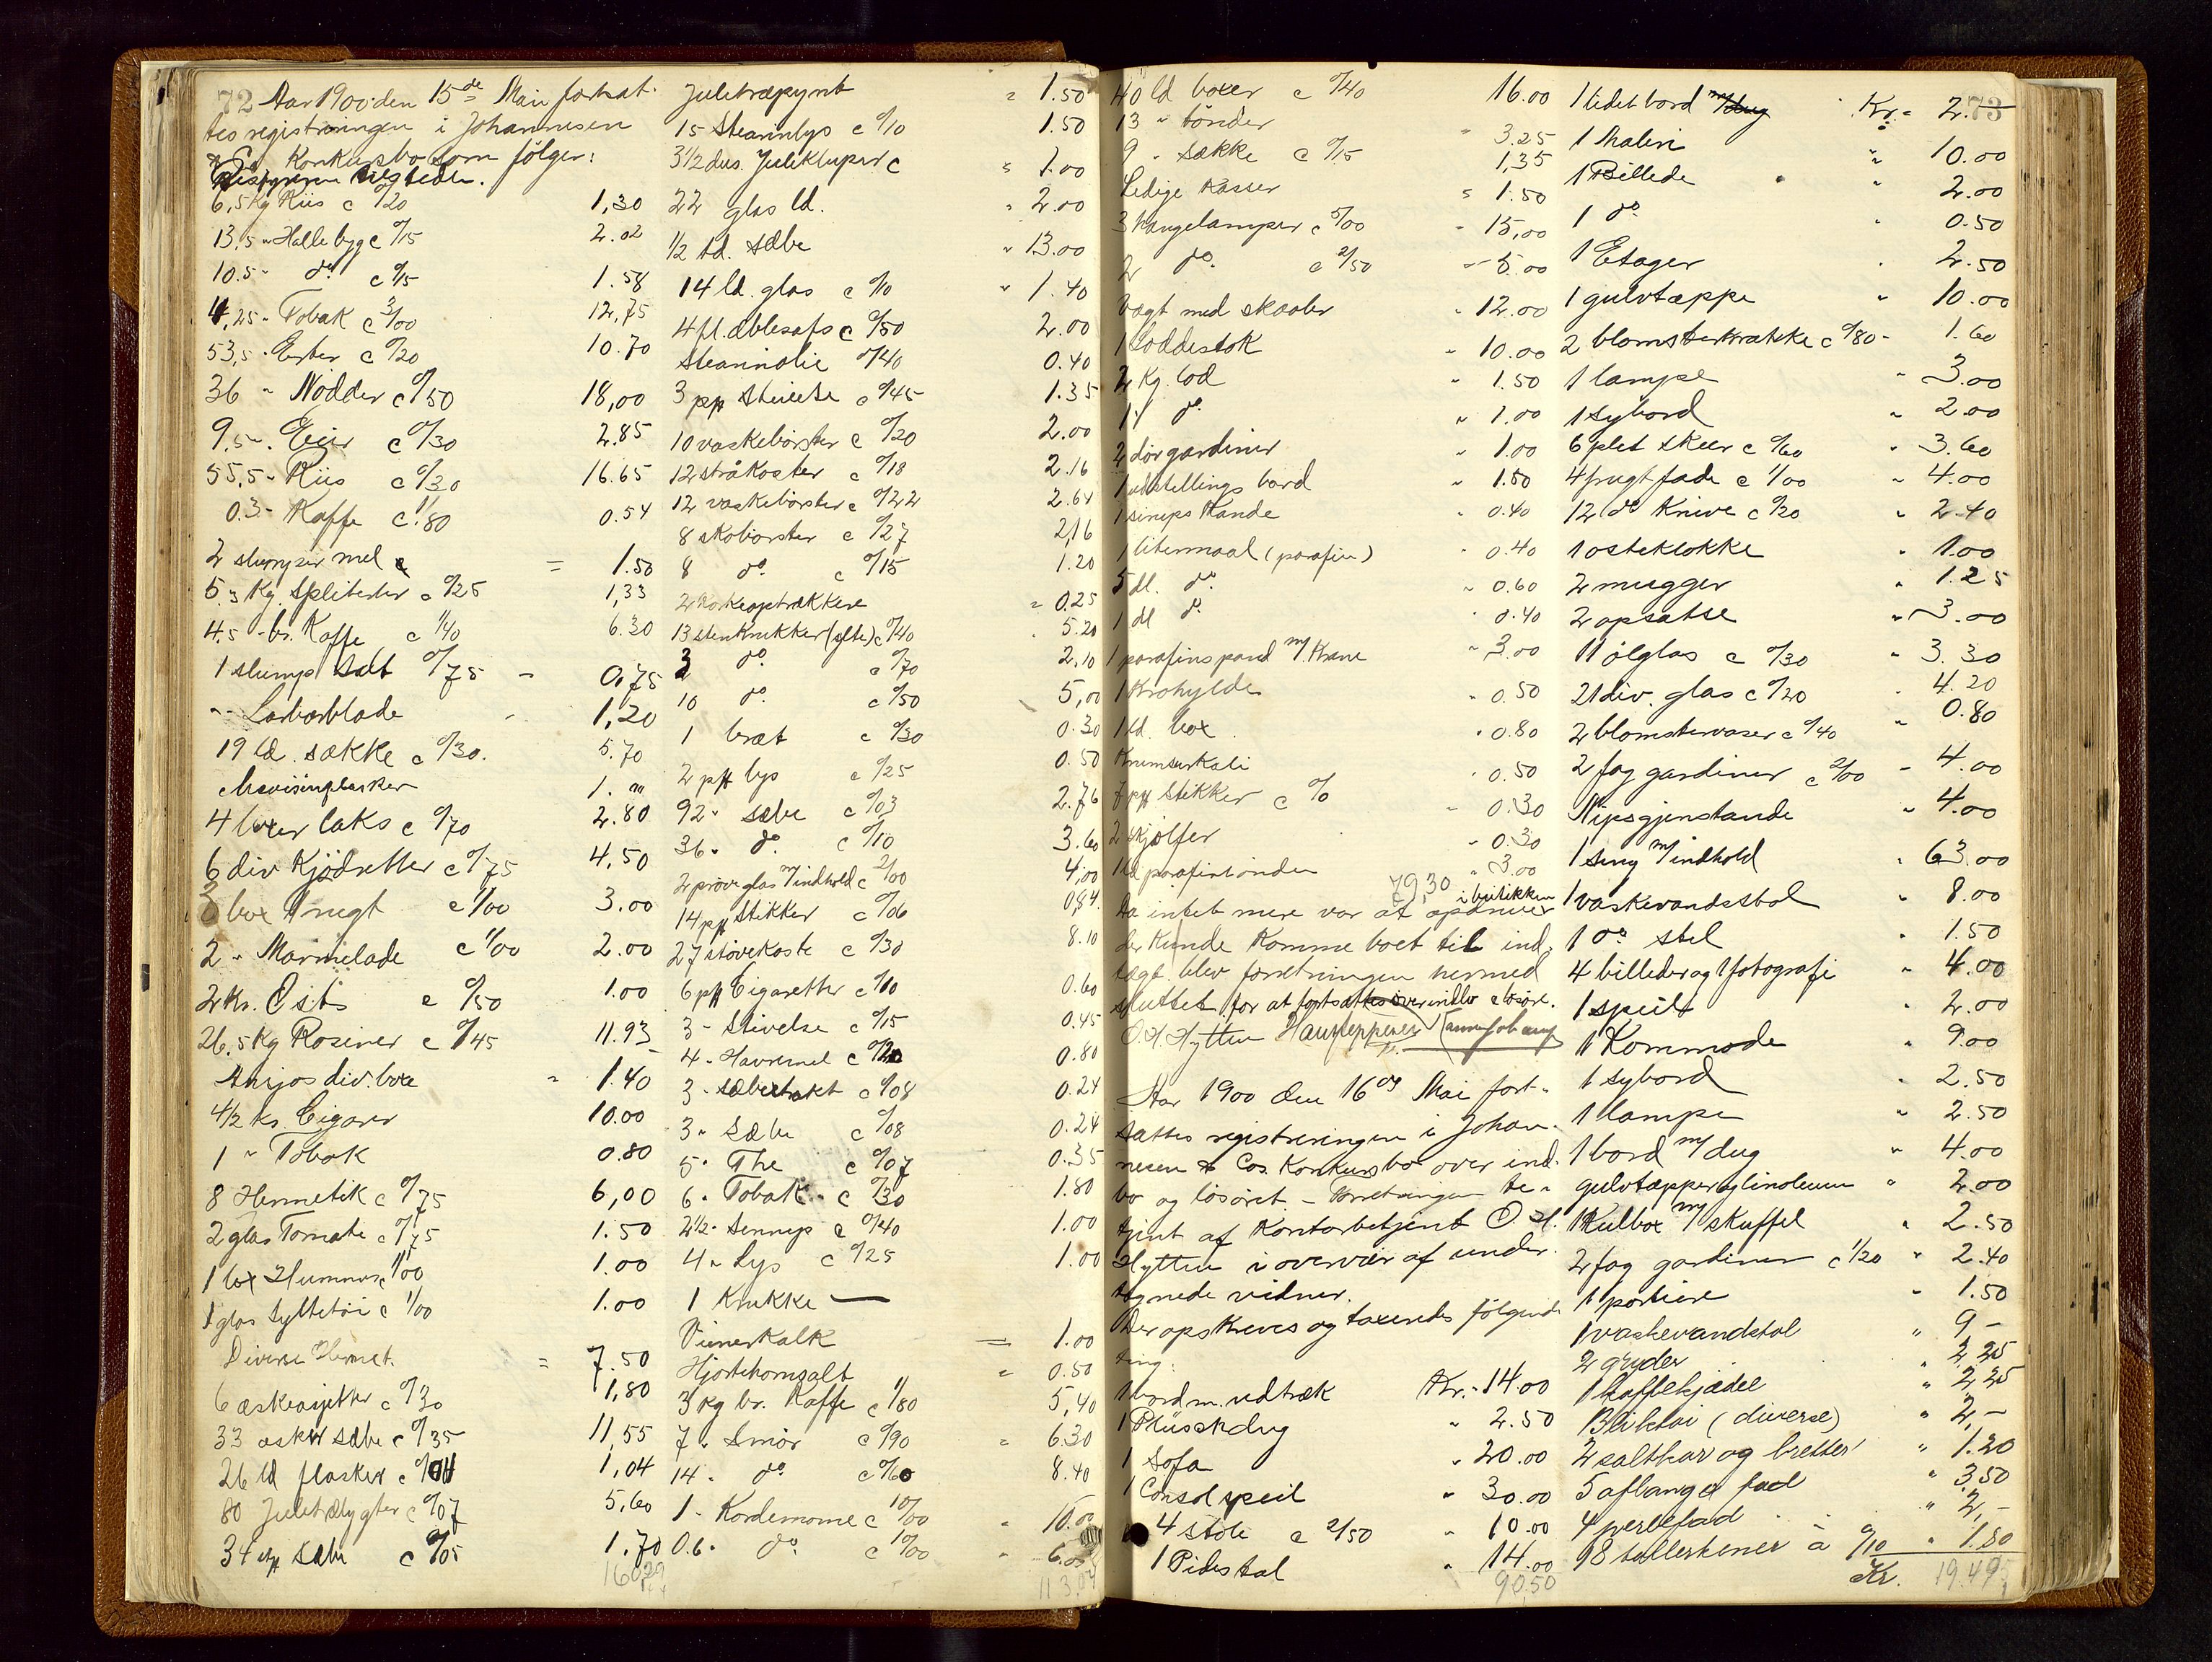 72 Aar 1900 den 15de Mai fortsat-
tes registreringen i Johannesen
& Co Konkursbo som følger:
Bestyreren tilstede.
6,5 Kg Riis c 0/20 1,30
13,5 " Hallebyg c 0/15 2.02
10.5 " do c 0/15 1.58
4,25 " Tobak c 3/00 12,75
53,5 " Erter c 0/20 10.70
36 " Nødder c 0/50 18,00
9,5 " 0/30 2.85
55,5 " Riis c 0/30 16.65
0.3 " Kaffe c 1/80 0.54
2 slumper mel = 1.50
5.3 Kg. Spliterter c 0/25 1,33
4.5 " br. Kaffe c 1/40 6.30
1 slump Salt 0/75 - 0,75
" - Laurbærblade - 1,20
19 ld. sække c 0/30. 5.70
1. "
4 boxer laks c 0/70 2.80
6 div Kjødretter c 0/75 4,50
3 box Frugt c 1/00 3.00
2 " Marmelade c 1/00 2.00
2 Kr. Ost c 0/50 1.00
26,5 Kg Rosiner c 0/45 11.93
Ansjos div. boxe " 1.40
4 1/2 ks. Cigarer 10.00
1 " Tobak 0.80
8 Hermetik c 0/75 6,00
2 glas Tomate c 0/75 1.50
1 box Hummer c 1/00 1.00
1 glas Syltetøi c 1/00 1.00
Diverse Hermet. = 7.50
6 c 0/30 1,80
33 æsker sæbe c 0/35 11,55
26 ld flasker c 0/04 1,04
80 Juletrælygter c 0/07 5,60
34 stk sæbe c 0/05 1.70
Juletræpynt " 1.50
15 Stearinlys c 0/10 1.50
3 1/2 dus. Juleklyper c " 1.00
22 glas ld. " 2.00
1/2 td. Sæbe " 13.00
14 ld. glas c 0/10 " 1.40
4 fl. æblesaft c 0/50 2.00
Stearinolie 0/40 0.40
3 pp Stivelse c 0/45 1.35
10 vaskebørster c 0/20 2.00
12 stråkoster c 0/18 2.16
12 vaskebørster c 0/22 2.64
8 skobørster c 0/27 2,16
8 do c 0/15 1.20
2 Korkeoptrækkere = 0.25
13 stenkrukker (sylte) c 0/40 5.20
3 do c 0/70 2,10
10 do c 0/50 5,00
1 bræt c 0/30 0.30
2 pk lys c 0/25 0.50
92 " sæbe c 0/03 2.76
36 " do c 0/10 3.60
2 prøveglas m/indhold c 2/00 4,00
14 pk Stikker c 0/06 0,84
27 støvekoste c 0/30 8.10
6 pk Cigaretter c 0/10 0.60
3 " Stivelse c 0/15 0.45
4 " Havremel c 0/20 0.80
3 " Sæbextrakt c 0/08 0.24
3 " Sæbe c 0/08 0.24
5 " The c 0/07 0.35
6 " Tobak " c 0/30 1.80
2 1/2 " Sennep c 0/40 1.00
4 " Lys c 0/25 1.00
1 Krukke —
Vienerkalk = 1.00
Hjortehornsalt = 0.50
3 kg br. Kaffe c 1/80 5,40
7 " Smør c 0/90 = 6.30
14 " do c 0/60 8.40
1 " Kardemome c 10/00 " 10.00
0.6 " do c 10/00 "
40 ld boxer c 0/40 16.00
13 " tønder " 3.25
9 " Sække c 0/15 1,35
Ledige Kasser " 1.50
3 hængelamper c 5/00 " 15,00
2 do. c 2/50 " 5.00
Vægt med skaaler " 12.00
1 Loddestok " 10.00
2 Kg. lod " 1.50
1 " do " 1.00
2 dørgardiner " 1.00
1 udstillings bord " 1.50
1 sineps Kande " 0.40
1 litermaal (parafin) " 0.40
5 dl. do " 0.60
1 dl do " 0.40
1 parafinspand m/ Krane " 3.00
1 Krohylde " 0.50
1 ld. box " 0.80
0.50
7 pk Stikker c 0/ " 0.30
2 skjølfer " 0.30
1 ld parafintønden " 3.00
79,30
Da intet mere var at i butikken
der kunde Komme boet til ind-
tægt blev forretningen hermed
sluttet for at fortsættes over indbo & løsøre.
O. H. Hytten
Aar 1900 den 16de Mai fort-
sattes registreringen i Johan-
nesen & Cos Konkursbo over ind-
bo og løsøret. - Forretningen be-
tjent af Kontorbetjent O. H.
Hytten i overvær af under-
tegnede vidner.
Der opskreves og taxeredes følgende
ting:
1 bord m. udtræk Kr. - 14.00
1 Plüschdug " 2.50
1 Sofa " 20.00
1 Consolspeil " 30.00
4 Stole c 2/50 " 10.00
1 Pidestal " 14.00
90,50
73
1 lidet bord m/dug Kr. - 2.
1 Maleri " 10.00
1 Billede " 2.00
1 do " 0.50
1 Etager " 2.50
1 gulvtæppe " 10.00
2 blomsterkrukke c 0/80 - 1.60
1 lampe " 3.00
1 sybord " 2.00
6 plet skeer c 0/60 " 3.60
4 frugtfade c 1/00 " 4.00
12 do Knive c 0/20 " 2.40
1 osteklokke " 1.00
2 mugger " 1.25
2 opsatse " 3.00
11 ølglas c 0/30 " 3.30
21 div. glas c 0/20 " 4.20
2 blomstervaser c 0/40 " 0.80
2 fag gardiner c 2/00 - 4.00
Nipsgjenstande " 4.00
1 seng m/indhold " 63.00
1 vaskevandsstol " 8.00
1 do stel " 1.50
4 billeder og 1 fotografi " 4.00
1 speil " 2.00
1 Kommode " 9.00
1 sybord " 2.50
1 lampe " 2.50
1 bord m/dug " 4.00
gulvtæpper og linoleum " 2.00
1 Kulbox m/skuffel " 2.50
2 fag gardiner c 1/20 " 2.40
1 portiere " 1.50
1 vaskevandstol " 9 -
2 gryder " 2,25
1 kaffekjædel " 2,25
Bliktøi (diverse) " 2,-
2 saltkar og bretter " 1.20
5 aflange fad " 3,50
4 perlefad " 2,-
18 tallerkener à 0/10 " 1.80
Kr.